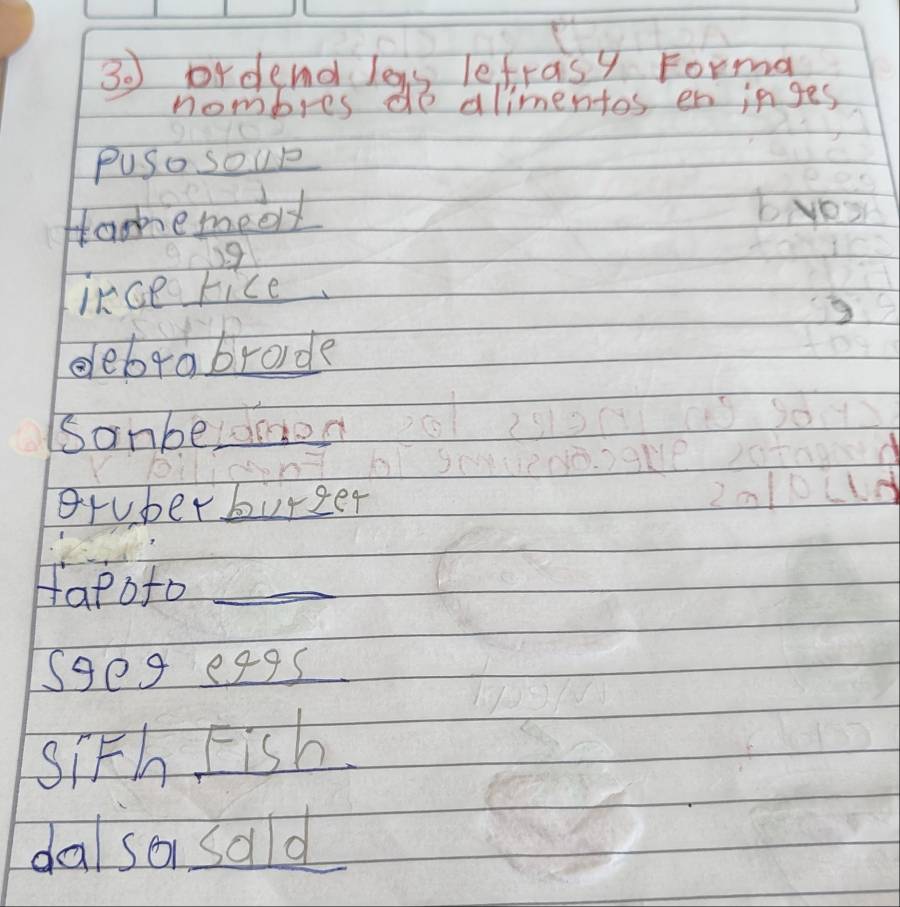 3.) ordena las letras y Forma
nombres de alimentos en inges
puso soup
tame meat
irce rice
debra brade
Sanbe
gruber burger
tapoto
sgeg eggs
siFh Fish
dalsa sald